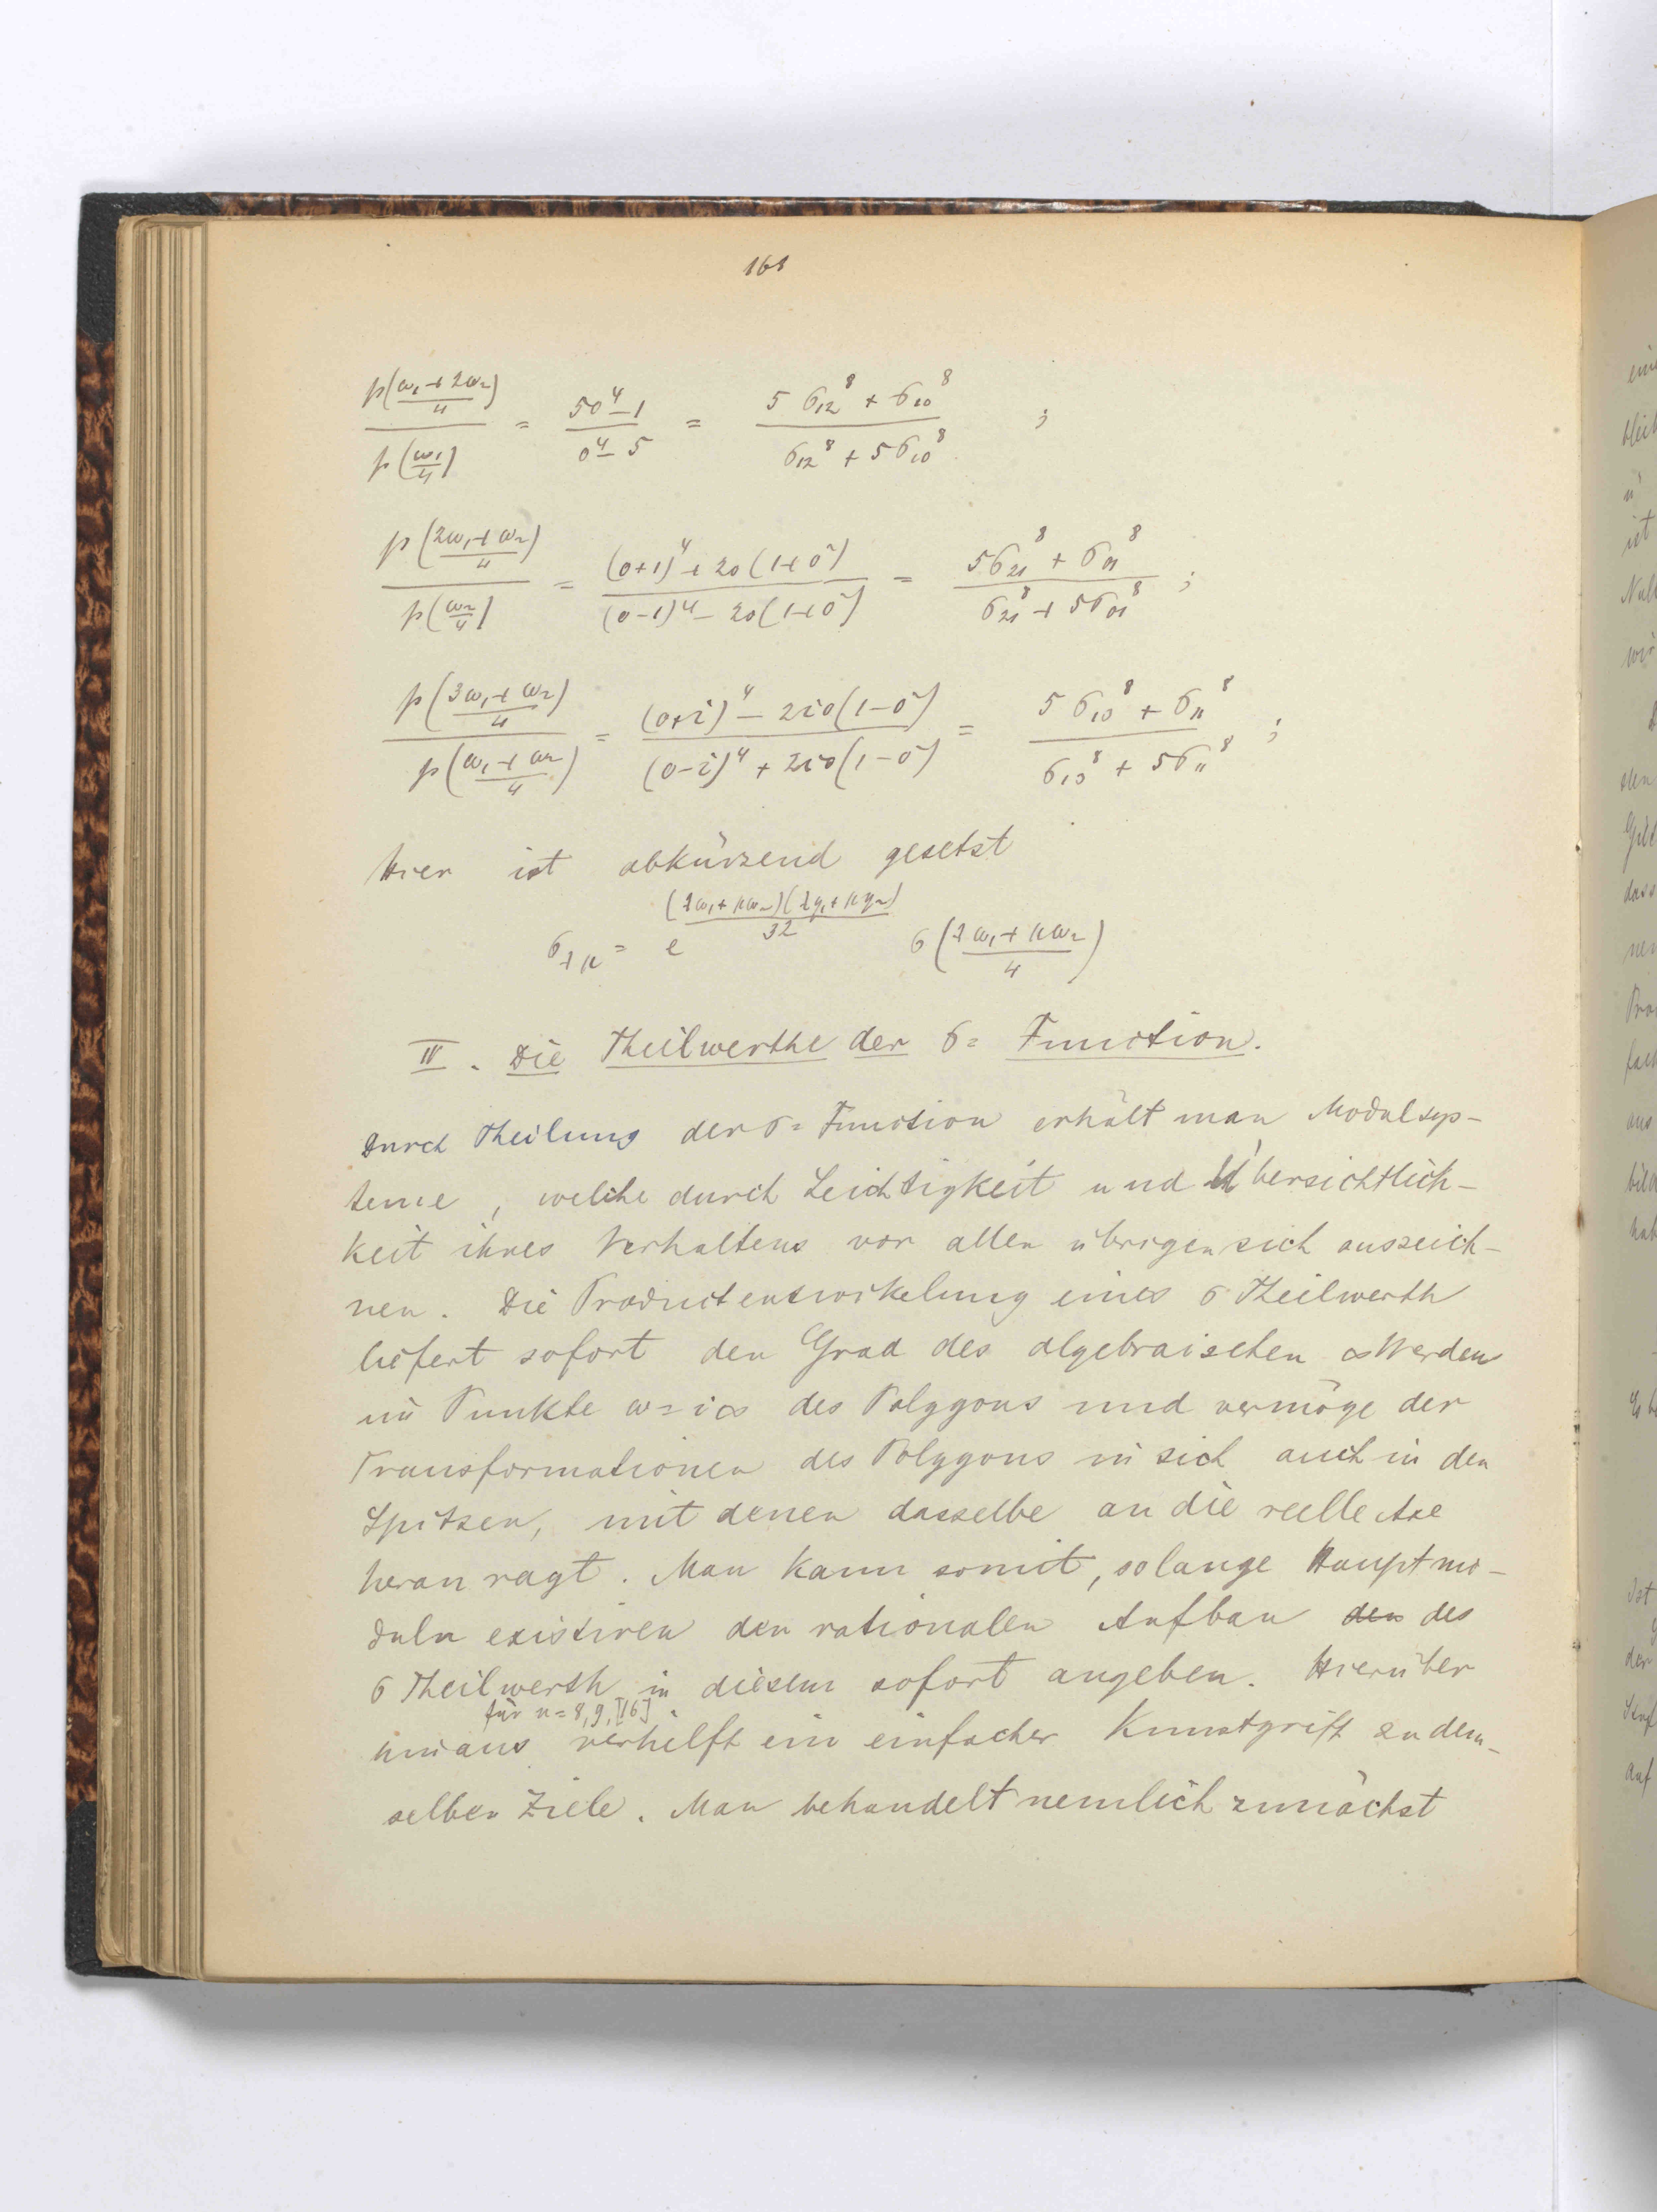 161
p(ω₁+2ω₂/4) / p(ω₁/4) = 5o⁴−1 / o⁴−5 = 5σ₁₂⁸ + σ₁₀⁸ / σ₁₂⁸ + 5σ₁₀⁸ ;
p(2ω₁+ω₂/4) / p(ω₂/4) = (o+1)⁴ + 2o(1+o²) / (o−1)⁴ − 2o(1+o²) = 5σ₂₁⁸ + σ₀₁⁸ / σ₂₁⁸ + 5σ₀₁⁸ ;
p(3ω₁+ω₂/4) / p(ω₁+ω₂/4) = (o+i)⁴ − 2io(1−o²) / (o−i)⁴ + 2io(1−o²) = 5σ₁₃⁸ + σ₁₁⁸ / σ₁₃⁸ + 5σ₁₁⁸ ;
Hier ist abkürzend gesetzt
σλμ = e^((λω₁+μω₂)(λη₁+μη₂)/32) σ(λω₁+μω₂/4)
IV. Die Theilwerthe der σ= Function.
Durch Theilung der σ= Function erhält man Modulsys-
teme, welche durch Leichtigkeit und Übersichtlich-
keit ihres Verhaltens vor allen übrigen sich auszeich-
nen. Die Productentwikelung eines σ Theilwerth
liefert sofort den Grad des algebraischen ∞ Werdens
im Punkte ω=i∞ des Polygons und vermöge der
Transformationen des Polygons in sich auch in den
Spitzen, mit denen dasselbe an die reelle Axe
heran ragt. Man kann somit, solange Hauptmo-
duln existiren den rationalen Aufbau den des
σ Theilwerth in diesem sofort angeben. Hierüber
für n=8,9,[16]
hinaus verhilft ein einfacher Kunstgriff zu dem-
selben Ziele. Man behandelt nemlich zunächst